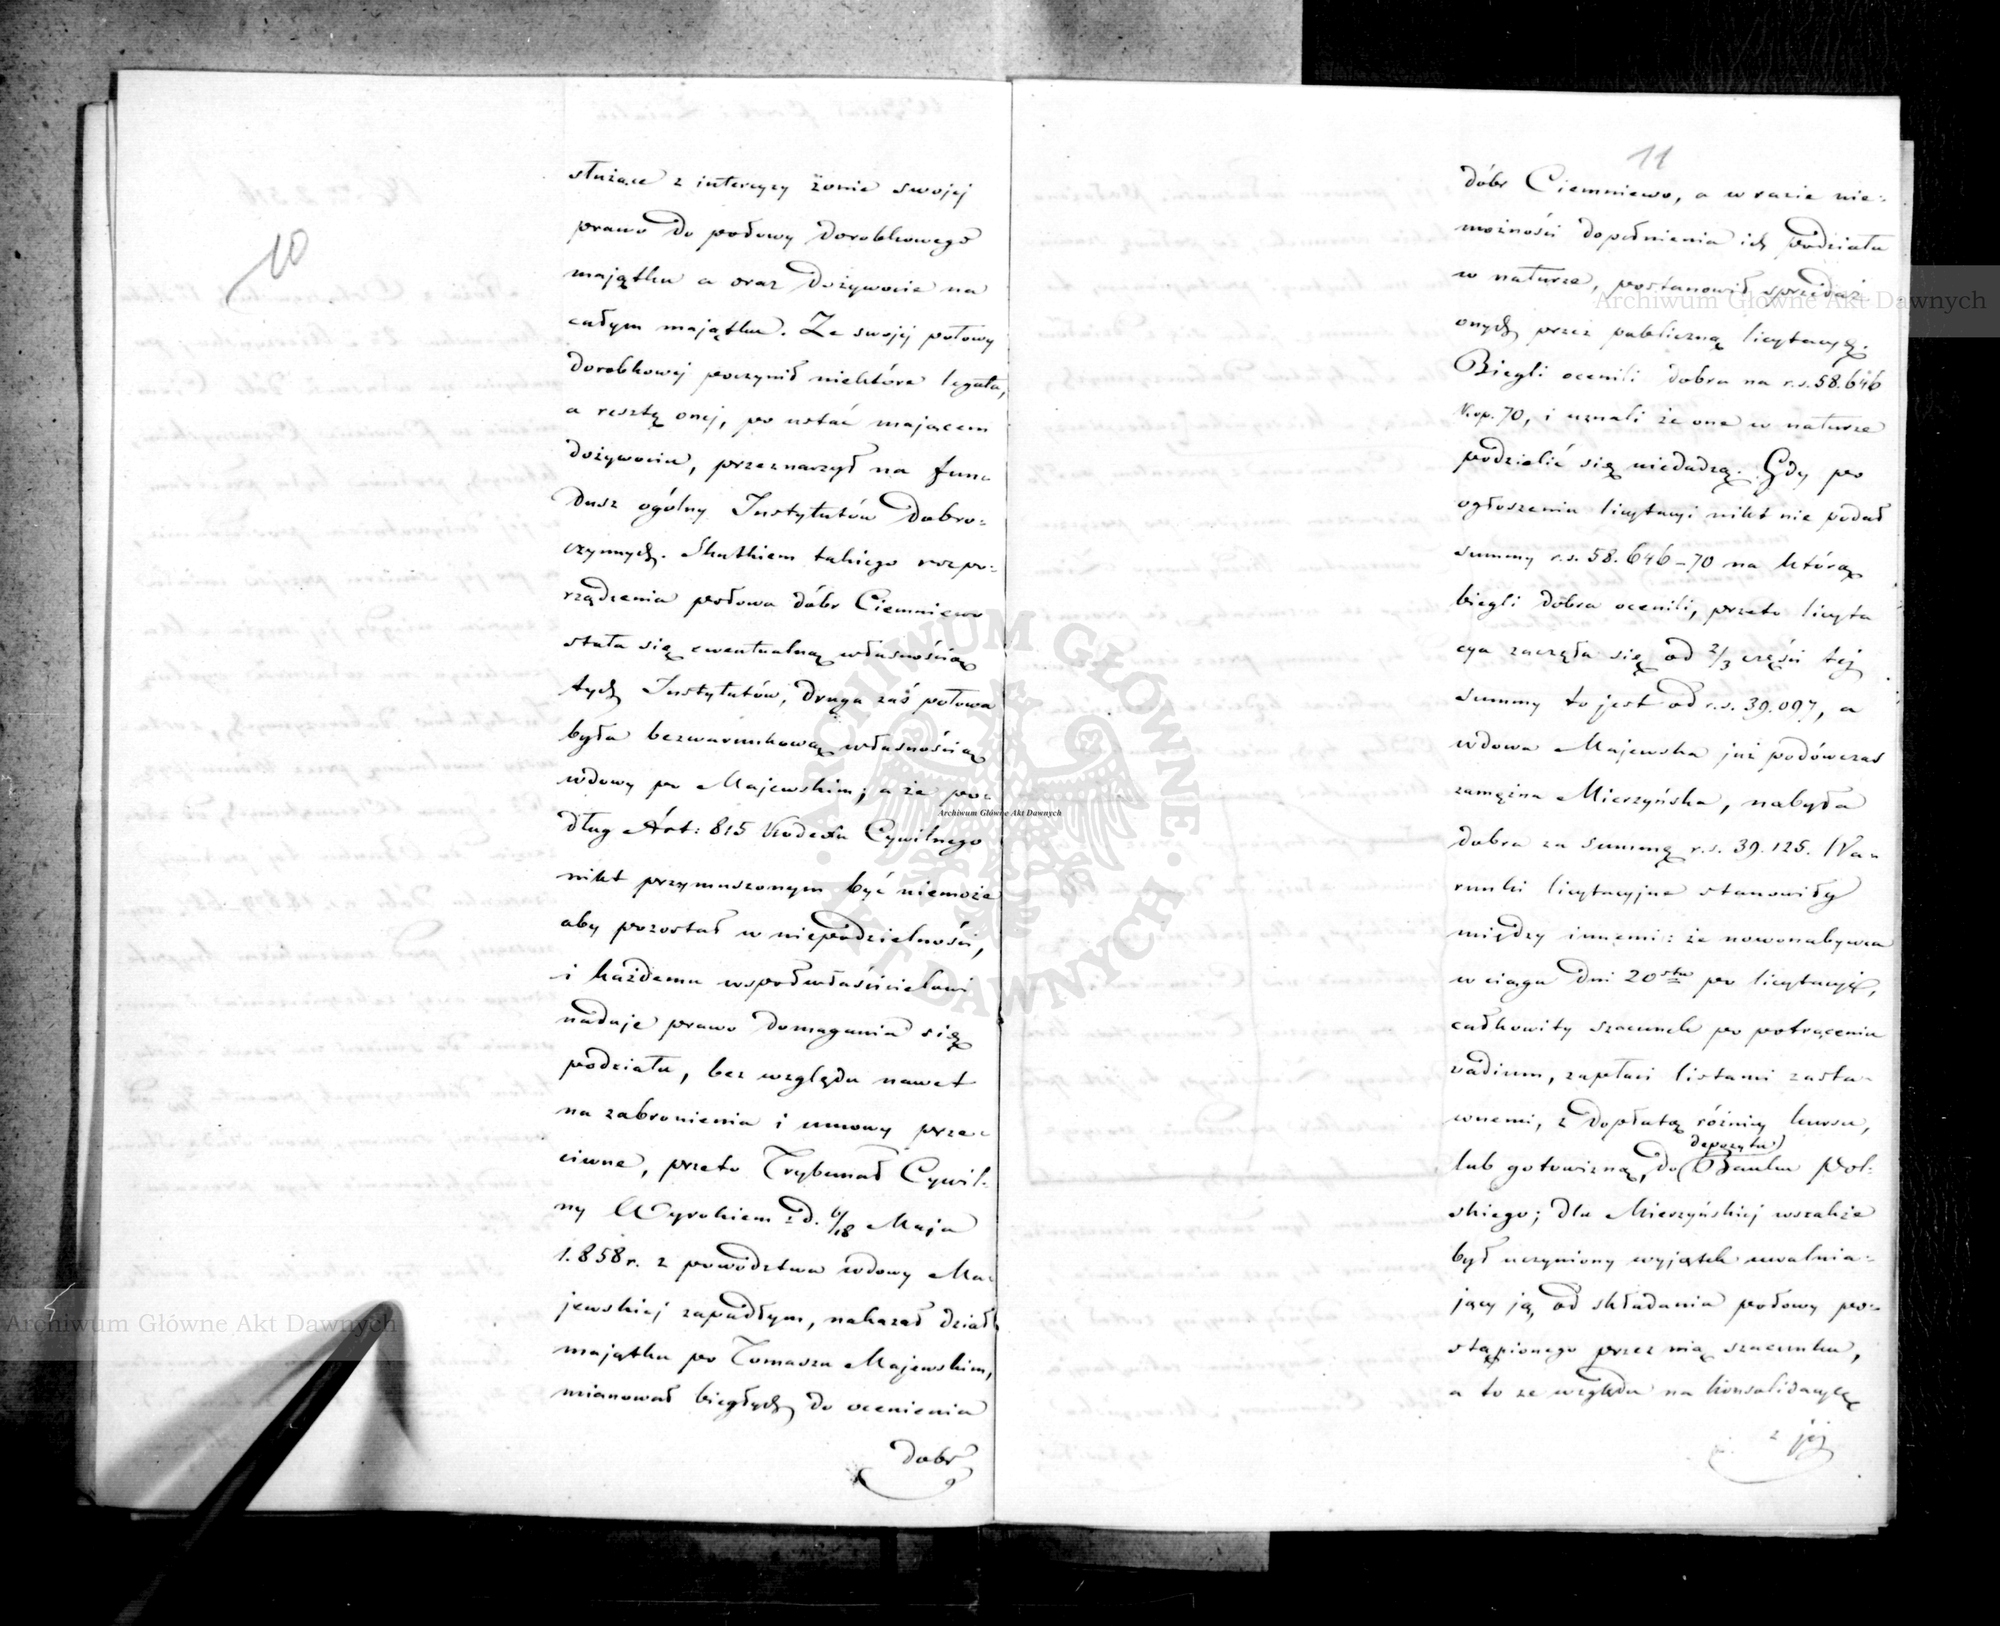 10
służące z intercyzy żonie swojej
prawo do połowy dorobkowego
majątku a oraz dożywocie na
całym majątku. Ze swojej połowy
dorobkowej poczynił niektóre legata,
a resztę onej, po ustać mającem
dożywociu, przeznaczył na fun-
dusz ogólny Instytutów Dobro-
czynnych. Skutkiem takiego rozpo-
rządzenia połowa dóbr Ciemniewo
stała się ewentualną własnością
tych Instytutów, druga zaś połowa
była bezwarunkową własnością
wdowy po Majewskim; a że po-
dług Art: 815 Kodexu Cywilnego
nikt przymuszonym być niemoże
aby pozostał w niepodzielności,
i każdemu współwłaścicielowi
nadaje prawo domagania się
podziału, bez względu nawet
na zabronienia i umowy prze-
ciwne, przeto Trybunał Cywil-
ny Wyrokiem z d. 6/18 Maja
1.858 r. z powództwa wdowy Ma-
jewskiej zapadłym, nakazał dział
majątku po Tomaszu Majewskim,
mianował biegłych do ocenienia
dobr
11
dóbr Ciemniewo, a w razie nie-
możności dopełnienia ich podziału
w naturze, postanowił sprzedaż
onych przez publiczną licytacyą.
Biegli ocenili dobra na r.s. 58.646
kop. 70, i uznali że one w naturze
podzielić się niedadzą. Gdy po
ogłoszeniu licytacyi nikt nie podał
summy r.s. 58.646-70 na którą
biegli dobra ocenili, przeto licyta
cya zaczęła się od 2/3 części tej
summy to jest od r.s. 39.097, a
wdowa Majewska już podówczas
zamężna Mierzyńska, nabyła
dobra za summę r.s. 39.125. Wa-
runki licytacyjne stanowiły
między innemi: że nowonabywca
w ciągu dni 20stu po licytacyi,
całkowity szacunek po potrąceniu
vadium, zapłaci listami zasta-
wnemi, z dopłatą różnicy kursu,
lub gotowizną, do (depozytu) Banku Pol-
skiego; dla Mierzyńskiej wszakże
był uczyniony wyjątek uwalnia-
jący ją od składania połowy po-
stąpionego przez nią szacunku,
a to ze względu na konsolidacyą
z jej
Archiwum Główne Akt Dawnych
Archiwum Główne Akt Dawnych
Archiwum Główne Akt Dawnych
ARCHIWUM GŁÓWNE · AKT DAWNYCH ·